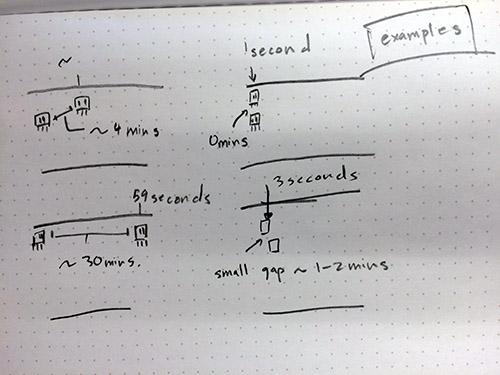 examples
~
1 second
~ 4 mins
0mins
59 seconds
3 seconds
~ 30 mins.
small gap ~ 1-2 mins